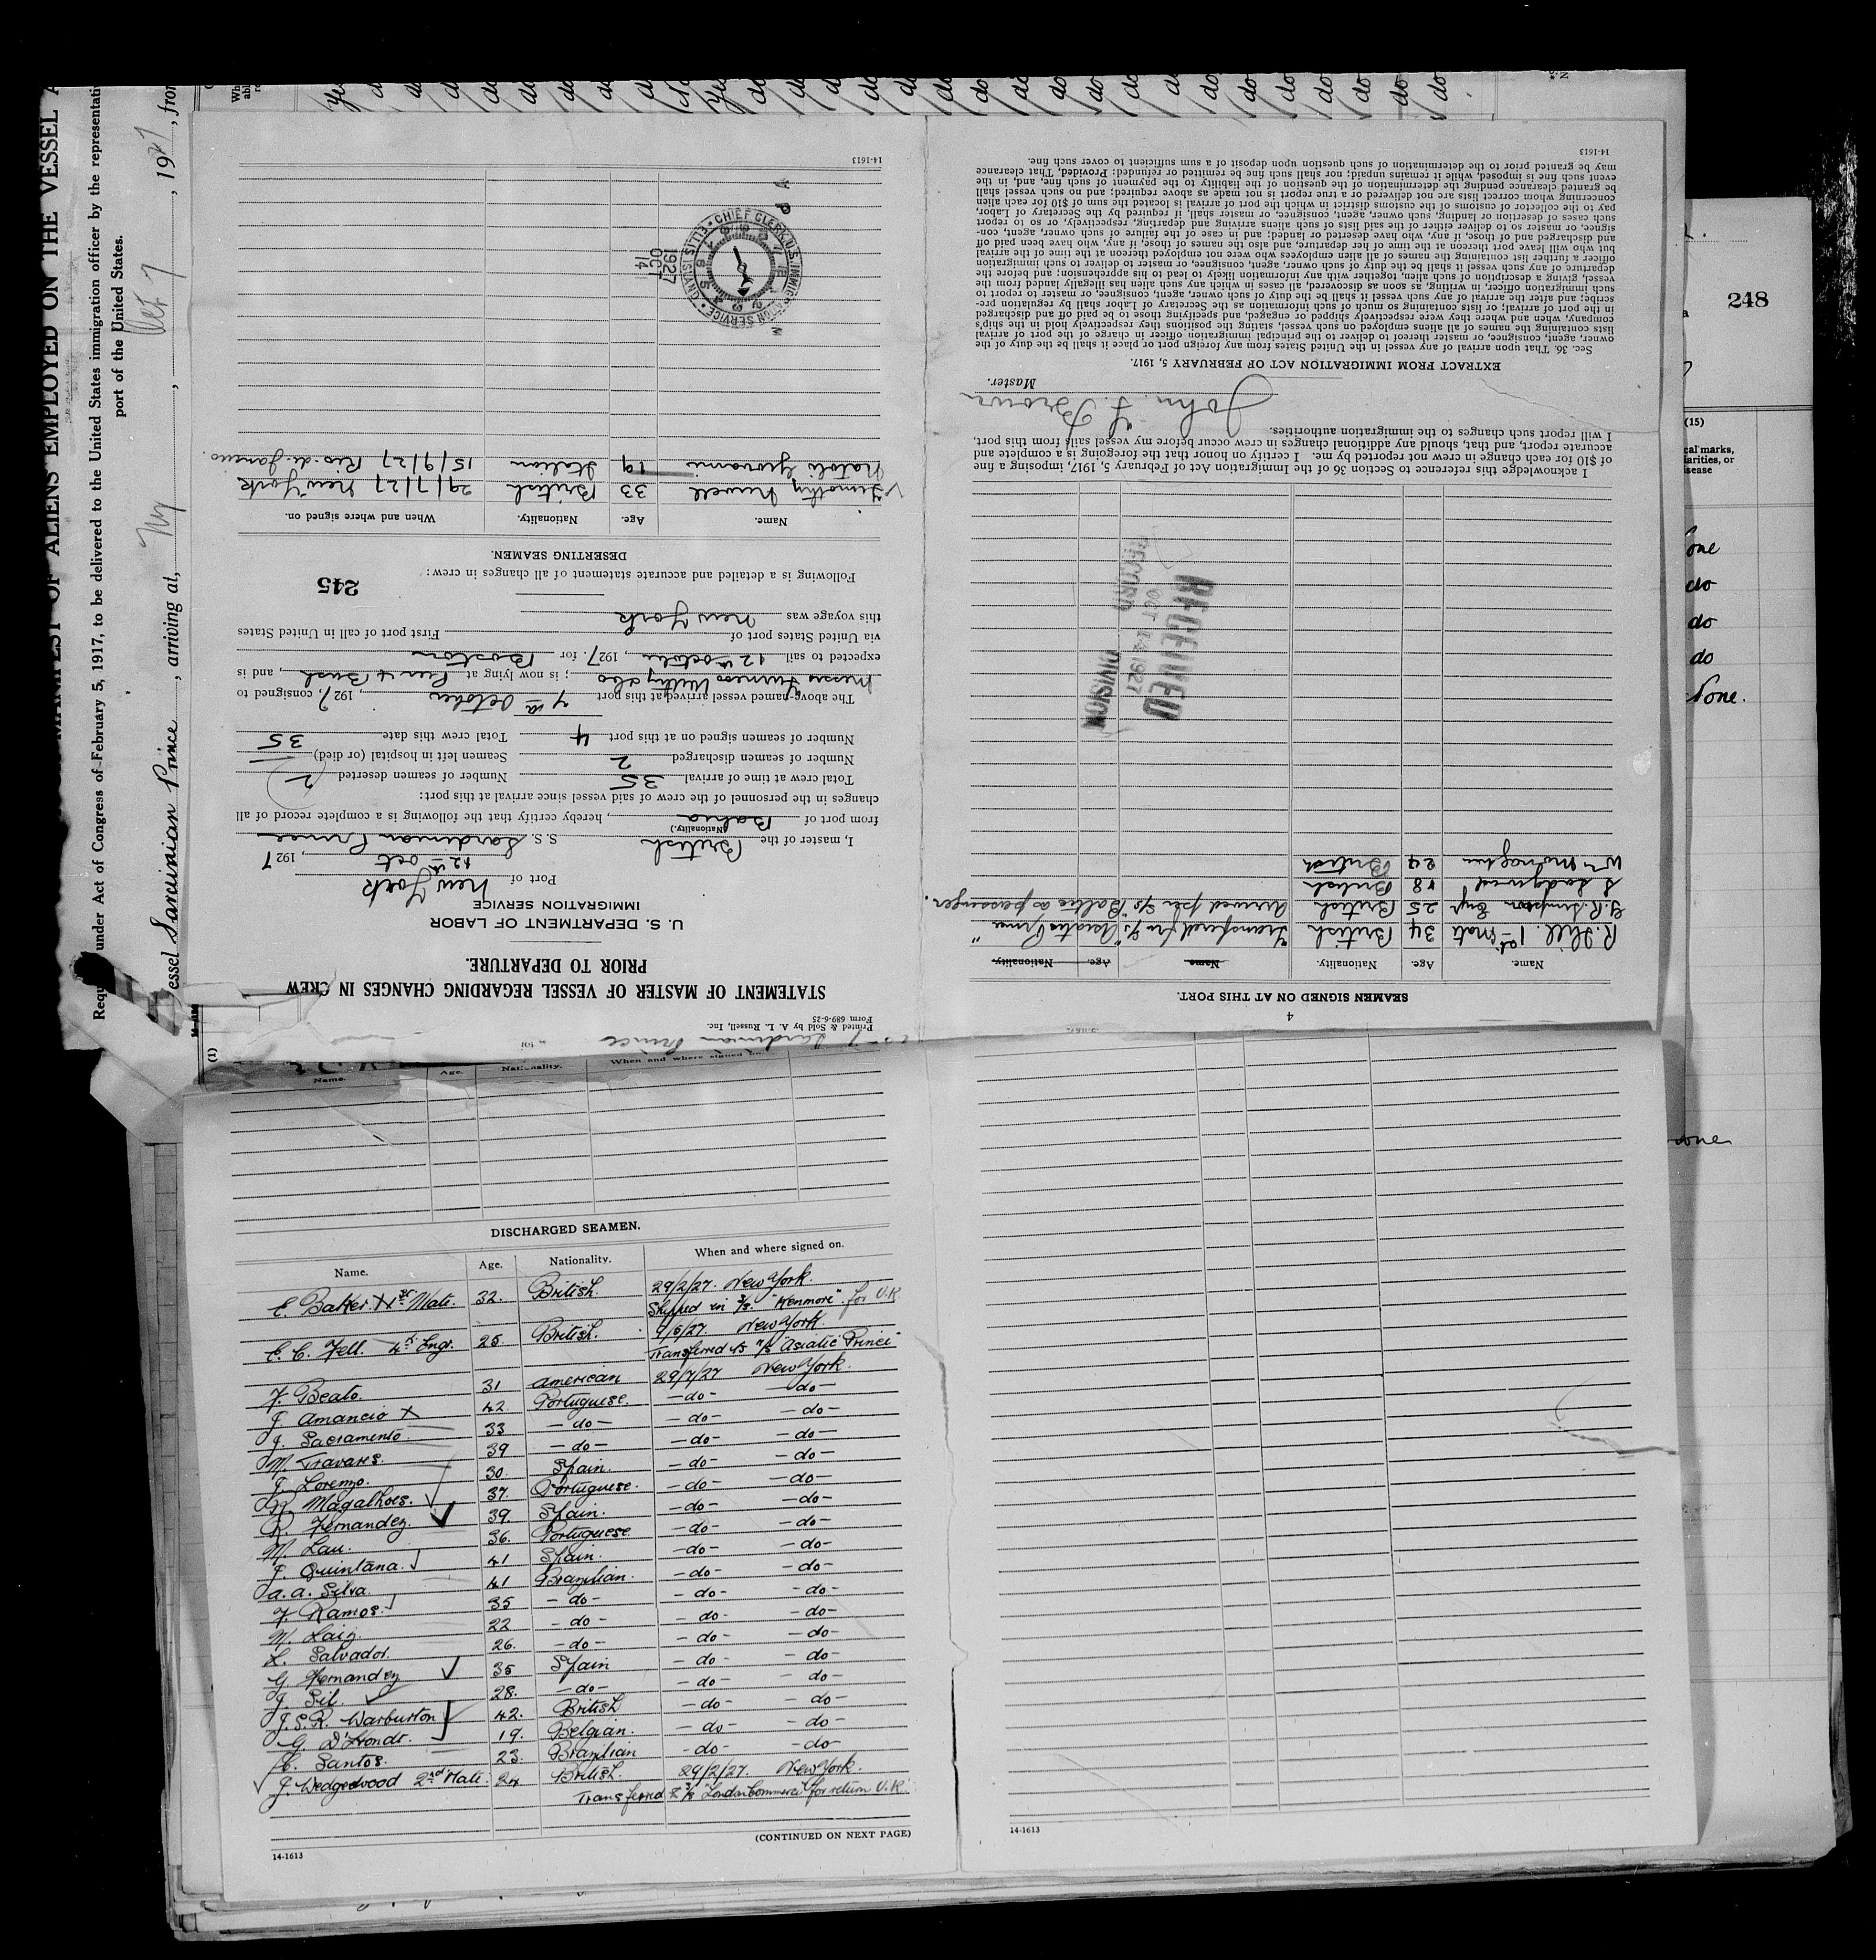 MANIFEST OF ALIENS EMPLOYED ON THE VESSEL A
under Act of Congress of February 5, 1917, to be delivered to the United States immigration officer by the representativ
port of the United States.
Vessel Sardinian Prince, arriving at, NY, Oct 7, 1927, from
248
(15)
do
do
do
None.
Printed & Sold by A. L. Russell, Inc.
Form 689-6-25
STATEMENT OF MASTER OF VESSEL REGARDING CHANGES IN CREW
PRIOR TO DEPARTURE.
U. S. DEPARTMENT OF LABOR
IMMIGRATION SERVICE
Port of New York
12th Oct, 1927
I, master of the British S. S. Sardinian Prince
(Nationality.)
from port of Bahia, hereby certify that the following is a complete record of all
changes in the personnel of the crew of said vessel since arrival at this port:
Total crew at time of arrival 35 Number of seamen deserted 2
Number of seamen discharged 2 Seamen left in hospital (or died)
Number of seamen signed on at this port 4 Total crew this date 35
The above-named vessel arrived at this port 7th October, 1927, consigned to
Messrs Furness Withy & Co; is now lying at Pier 4 Bush, and is
expected to sail 12th October, 1927. for Boston
via United States port of First port of call in United States
this voyage was New York
245
Following is a detailed and accurate statement of all changes in crew:
DESERTING SEAMEN.
Name. Age. Nationality. When and where signed on.
Timothy Newell 33 British 29/7/27 New York
Natoli Giovanni 19 Italian 15/9/27 Rio-de-Janeiro.
CHIEF CLERK U.S. IMMIGRATION SERVICE ELLIS ISLAND
1927
OCT
14
14-1613
4
SEAMEN SIGNED ON AT THIS PORT.
Name. Age. Nationality. Name Age. Nationality.
R. Hill. 1st Mate 34 British Transferred fm S/S "Asiatic Prince"
G. R. Simpson Engr 25 British Arrived per S/S "Baltic" as passenger.
S. Ladywood 18 British
Wm Monaghan 24 British
RECEIVED
OCT 14 1927
RECORD DIVISION
I acknowledge this reference to Section 36 of the Immigration Act of February 5, 1917, imposing a fine
of $10 for each change in crew not reported by me. I certify on honor that the foregoing is a complete and
accurate report, and that, should any additional changes in crew occur before my vessel sails from this port,
I will report such changes to the immigration authorities.
John F. Brown
Master.
EXTRACT FROM IMMIGRATION ACT OF FEBRUARY 5, 1917.
Sec. 36. That upon arrival of any vessel in the United States from any foreign port or place it shall be the duty of the
owner, agent, consignee, or master thereof to deliver to the principal immigration officer in charge of the port of arrival
lists containing the names of all aliens employed on such vessel, stating the positions they respectively hold in the ship's
company, when and where they were respectively shipped or engaged, and specifying those to be paid off and discharged
in the port of arrival; or lists containing so much of such information as the Secretary of Labor shall by regulation pre-
scribe; and after the arrival of any such vessel it shall be the duty of such owner, agent, consignee, or master to report to
such immigration officer, in writing, as soon as discovered, all cases in which any such alien has illegally landed from the
vessel, giving a description of such alien, together with any information likely to lead to his apprehension; and before the
departure of any such vessel it shall be the duty of such owner, agent, consignee, or master to deliver to such immigration
officer a further list containing the names of all alien employees who were not employed thereon at the time of the arrival
but who will leave port thereon at the time of her departure, and also the names of those, if any, who have been paid off
and discharged and of those, if any, who have deserted or landed; and in case of the failure of such owner, agent, con-
signee, or master so to deliver either of the said lists of such aliens arriving and departing, respectively, or so to report
such cases of desertion or landing, such owner, agent, consignee, or master shall, if required by the Secretary of Labor,
pay to the collector of customs of the customs district in which the port of arrival is located the sum of $10 for each alien
concerning whom correct lists are not delivered or a true report is not made as above required; and no such vessel shall
be granted clearance pending the determination of the question of the liability to the payment of such fine, and, in the
event such fine is imposed, while it remains unpaid; nor shall such fine be remitted or refunded: Provided, That clearance
may be granted prior to the determination of such question upon deposit of a sum sufficient to cover such fine.
14-1613
Name. Age. Nationality. When and where signed on.
DISCHARGED SEAMEN.
Name. Age. Nationality. When and where signed on.
E. Baker X 1st Mate. 32. British. 29/2/27. New York.
Shipped in S/S. "Kenmore" for U.K.
E. C. Fell 4th Engr. 25. British. 9/5/27. New York.
Transferred to S/S "Asiatic Prince"
F. Beato. 31 American 29/7/27 New York.
J. Amancio X 42. Portuguese. -do- -do-
J. Sacramento. 33 -do- -do- -do-
M. Travares. 39 -do- -do- -do-
J. Lorenzo. 30. Spain. -do- -do-
R. Magalhoes. 37. Portuguese. -do- -do-
R. Fernandez. 39. Spain. -do- -do-
M. Lau. 36. Portuguese -do- -do-
J. Quintana. 41 Spain. -do- -do-
A. A. Silva. 41 Brazilian. -do- -do-
F. Ramos. 35 -do- -do- -do-
M. Laiz. 22 -do- -do- -do-
L. Salvador. 26. -do- -do- -do-
G. Fernandez 35 Spain -do- -do-
J. Gil. 28. -do- -do- -do-
J. S. R. Warburton 42. British -do- -do-
G. D'Hondt. 19. Belgian. -do- -do-
C. Santos. 23. Brazilian -do- -do-
J. Wedgewood 2nd Mate. 24 British. 29/2/27. New York.
Transferred to S/S "London Commerce" for return U.K.
(CONTINUED ON NEXT PAGE)
14-1613
14-1613